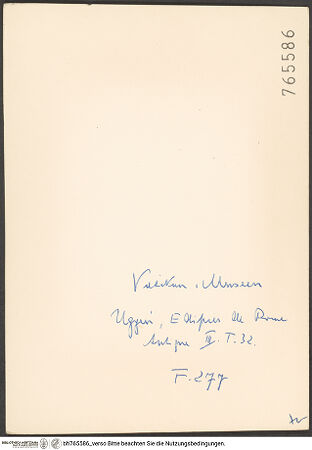 765586
Vatikan, Museen
Uggeri, Edifices de Rome
Antique III. T. 32.
F. 277
bh765586_verso Bitte beachten Sie die Nutzungsbedingungen.